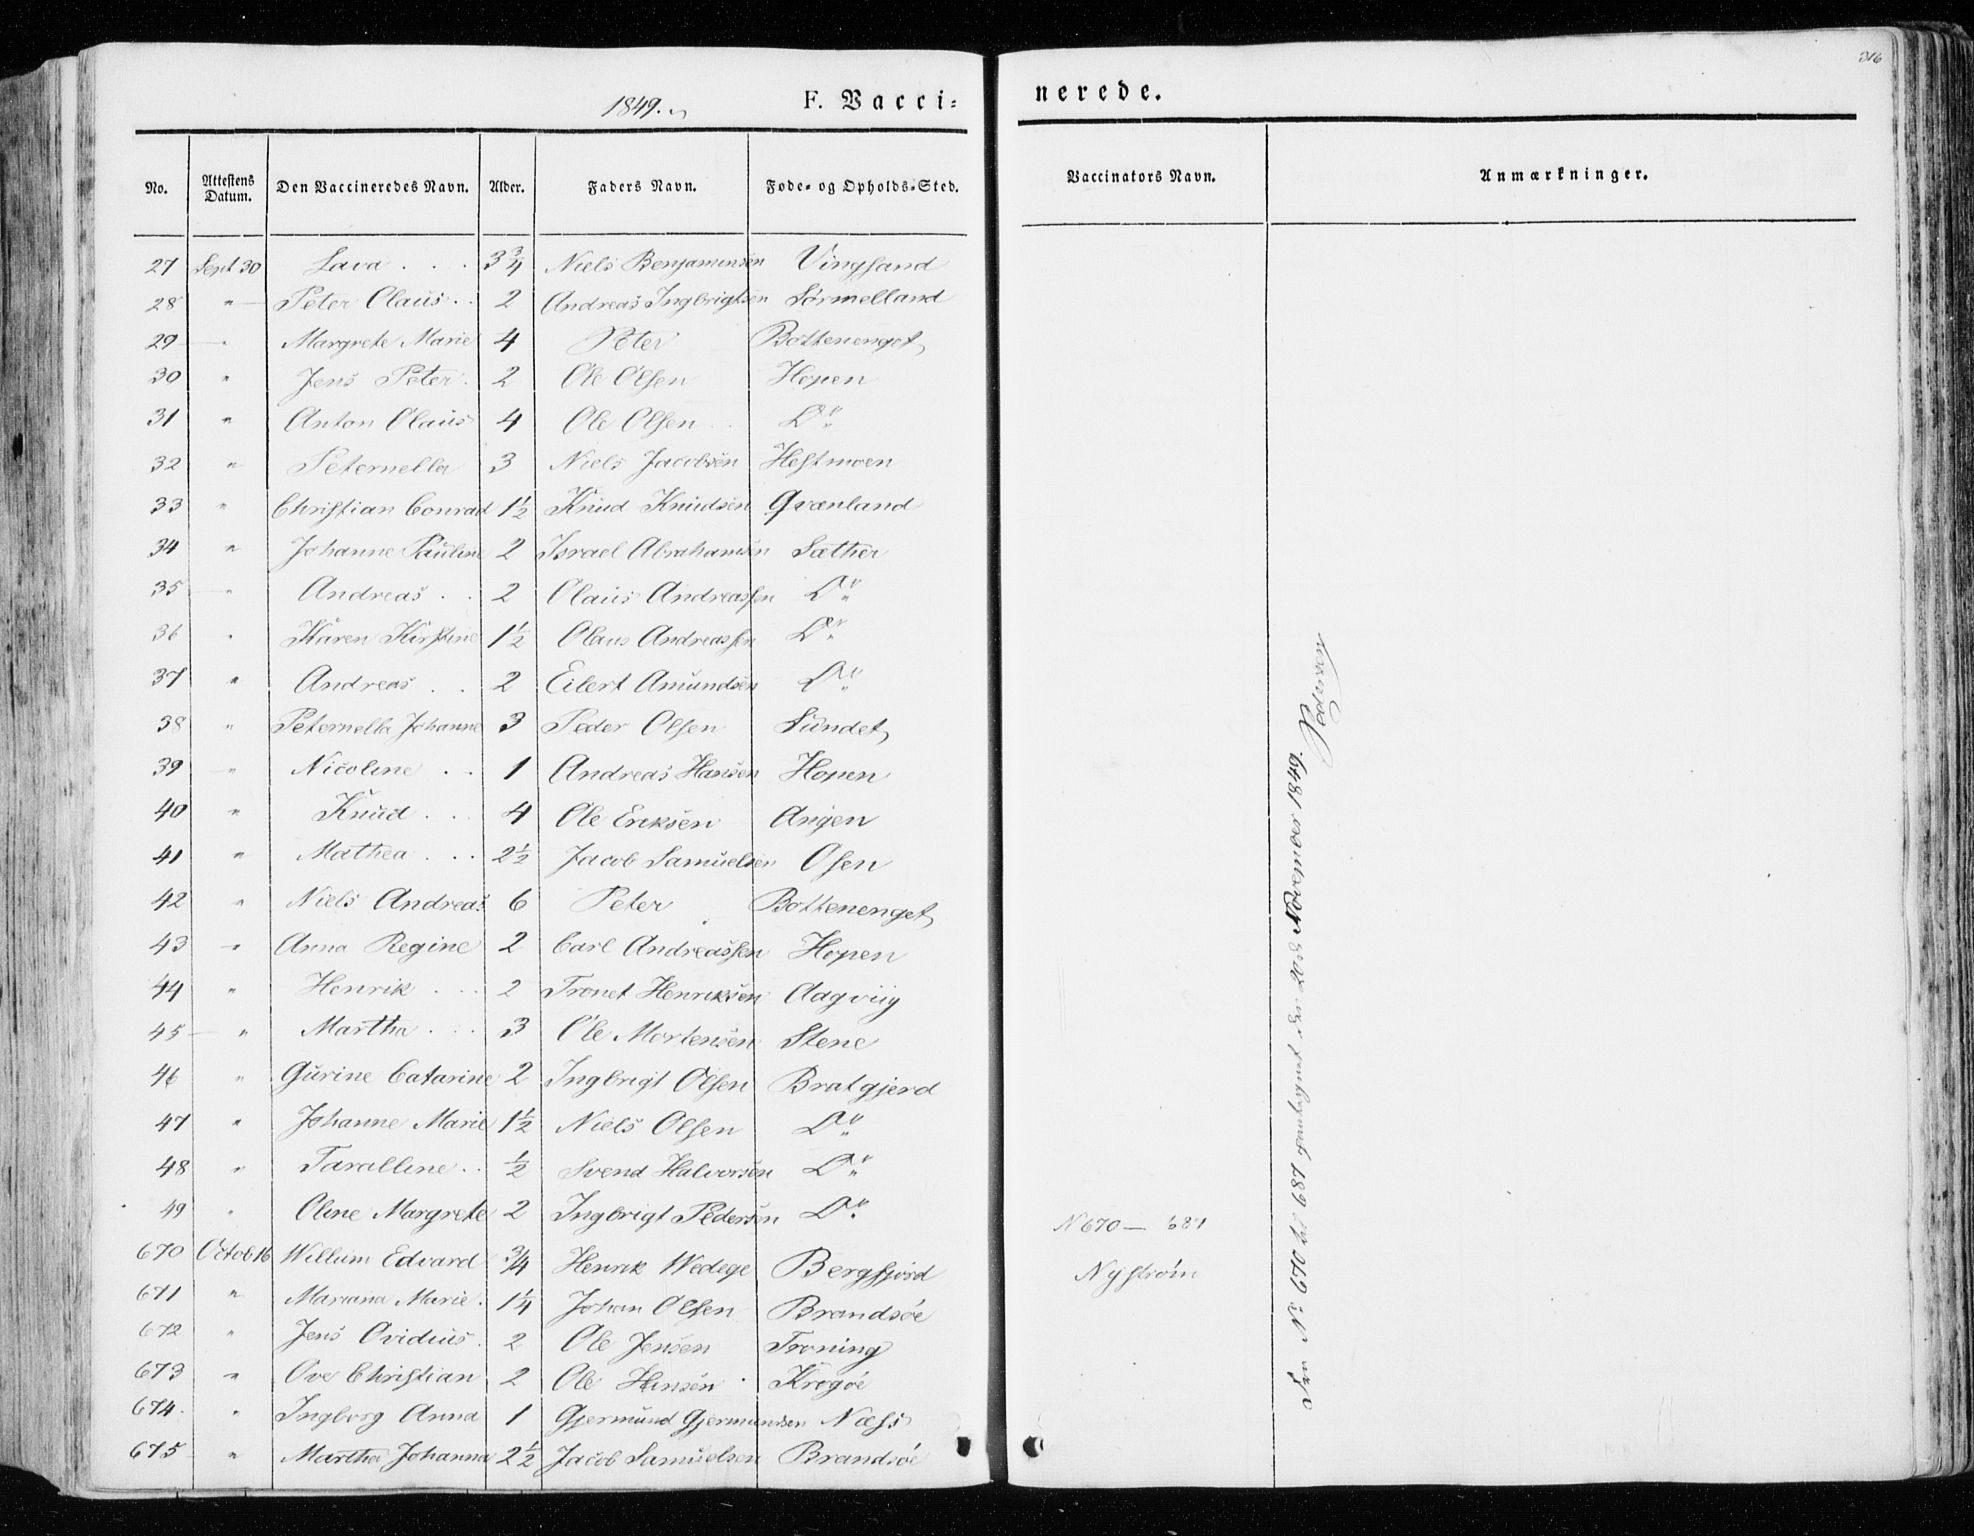 316
1849.
F. Vacci- nerede.
No. Attestens Datum. Den Vaccineredes Navn. Alder. Faders Navn. Føde- og Opholds-Sted. Vaccinators Navn. Anmærkninger.
27 Sept 30 Lava . . . 3 3/4 Niels Benjaminsen Vingsand
28 " Peter Olaus . . 2 Andreas Ingbrigtsen Sörmelland
29 " Margrete Marie 4 Peter Bottenenget
30 " Jens Peter . 2 Ole Olsen Hopen
31 " Anton Olaus 4 Ole Olsen Do
32 " Peternella 3 Niels Jacobsen Hestmoen
33 " Christian Conrad 1 1/2 Knud Knudsen Grænland
34 " Johanne Pauline 2 Israel Abrahamsen Sæther
35 " Andreas . . 2 Olaus Andreassen Do
36 " Karen Kirstine 1 1/2 Olaus Andreassen Do
37 " Andreas . . 2 Eilert Amundsen Do
38 " Peternella Johanne 3 Peder Olsen Sundet
39 " Nicoline . . 1 Andreas Hansen Hopen
40 " Knud . . . 4 Ole Eriksen Angen
41 " Mathea . . . 2 1/2 Jacob Samuelsen Osen
42 " Niels Andreas 6 Peter Bottenenget
43 " Anna Regine 2 Carl Andreassen Hopen
44 " Henrik . . . 2 Tronet Henriksen Aagviig
45 " Martha . . . 3 Ole Mortensen Stene
46 " Gurine Catarine 2 Ingbrigt Olsen Bratgjerd
47 " Johanne Marie 1 1/2 Niels Olsen Do
48 " Taralline . . 1/2 Svend Halvorsen Do
49 " Oline Margrete 2 Ingbrigt Pedersen Do
670 Octob 16 Willum Edvard 3/4 Henrik Wedege Bergfjord
671 " Mariana Marie . 1 1/4 Johan Olsen Brandsöe
672 " Jens Ovidius . 2 Ole Jensen Troning
673 " Ove Christian 2 Ole Hansen Krogöe
674 " Ingborg Anna 1 Gjermund Gjermundsen Næss
675 " Martha Johanna 2 1/2 Jacob Samuelsen Brandsöe
N 670 — 687
Nyström
No 670 til 687 den 20de November 1849. Pedersen